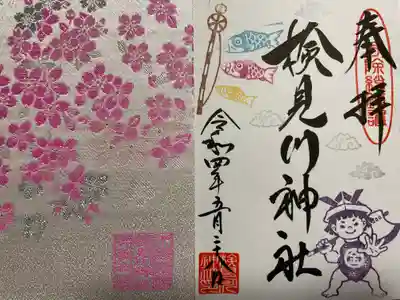 奉拝
検見川神社
令和四年五月二十八日